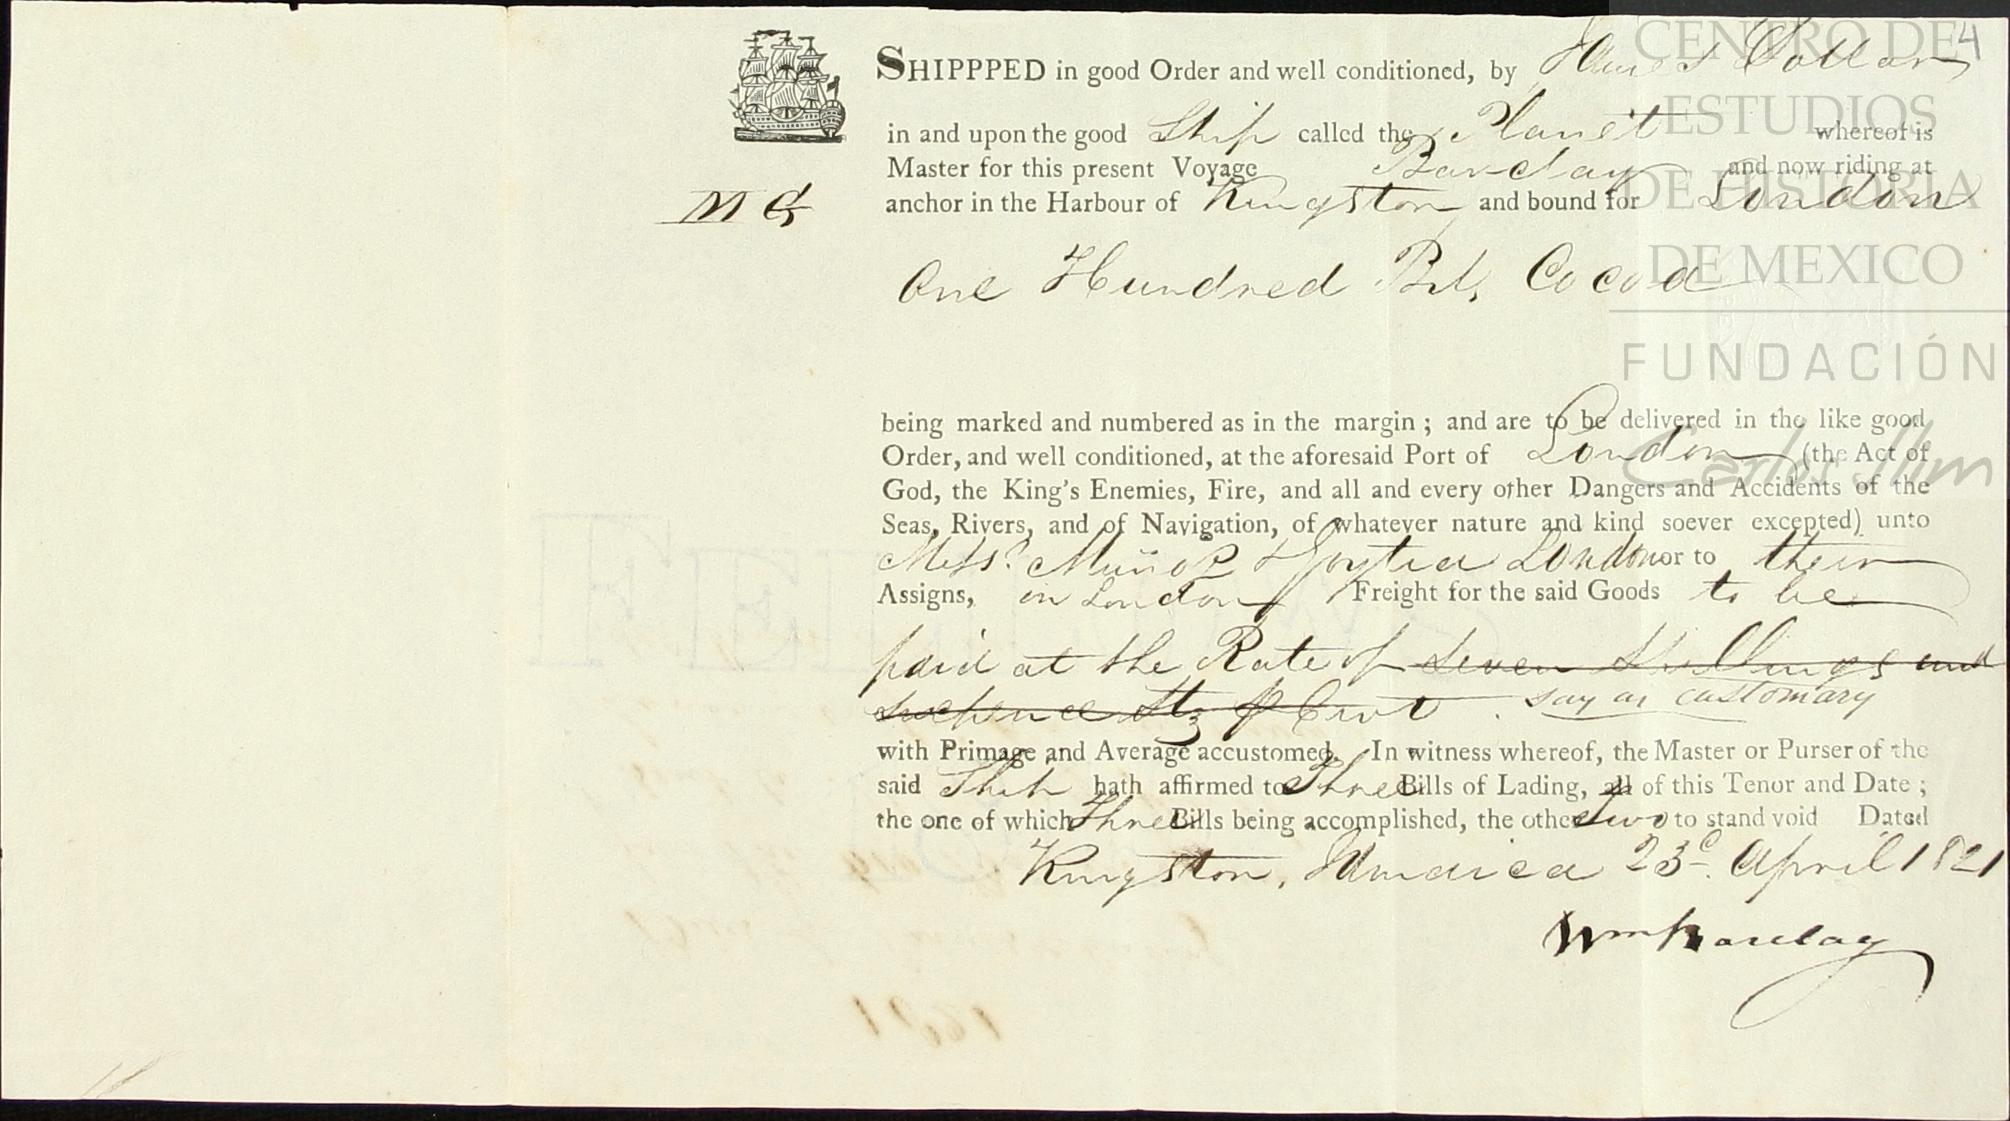 4
SHIPPPED in good Order and well conditioned, by James Dollar
in and upon the good Ship called the Planet whereof is
Master for this present Voyage Barclay and now riding at
M G anchor in the Harbour of Kingston and bound for London
One Hundred Bls Cocoa
being marked and numbered as in the margin; and are to be delivered in the like good
Order, and well conditioned, at the aforesaid Port of London (the Act of
God, the King's Enemies, Fire, and all and every other Dangers and Accidents of the
Seas, Rivers, and of Navigation, of whatever nature and kind soever excepted) unto
Messrs. Muñoz & Goytia London or to their
Assigns, in London Freight for the said Goods to be
paid at the Rate of seven Shillings and
sixpence Stg p Cwt. say as customary
with Primage and Average accustomed. In witness whereof, the Master or Purser of the
said Ship hath affirmed to Three Bills of Lading, all of this Tenor and Date;
the one of which Three Bills being accomplished, the other two to stand void Dated
Kingston, Jamaica 23d. April 1821
Wm Barclay
CENTRO DE
ESTUDIOS
DE HISTORIA
DE MEXICO
FUNDACIÓN
Carlos Slim